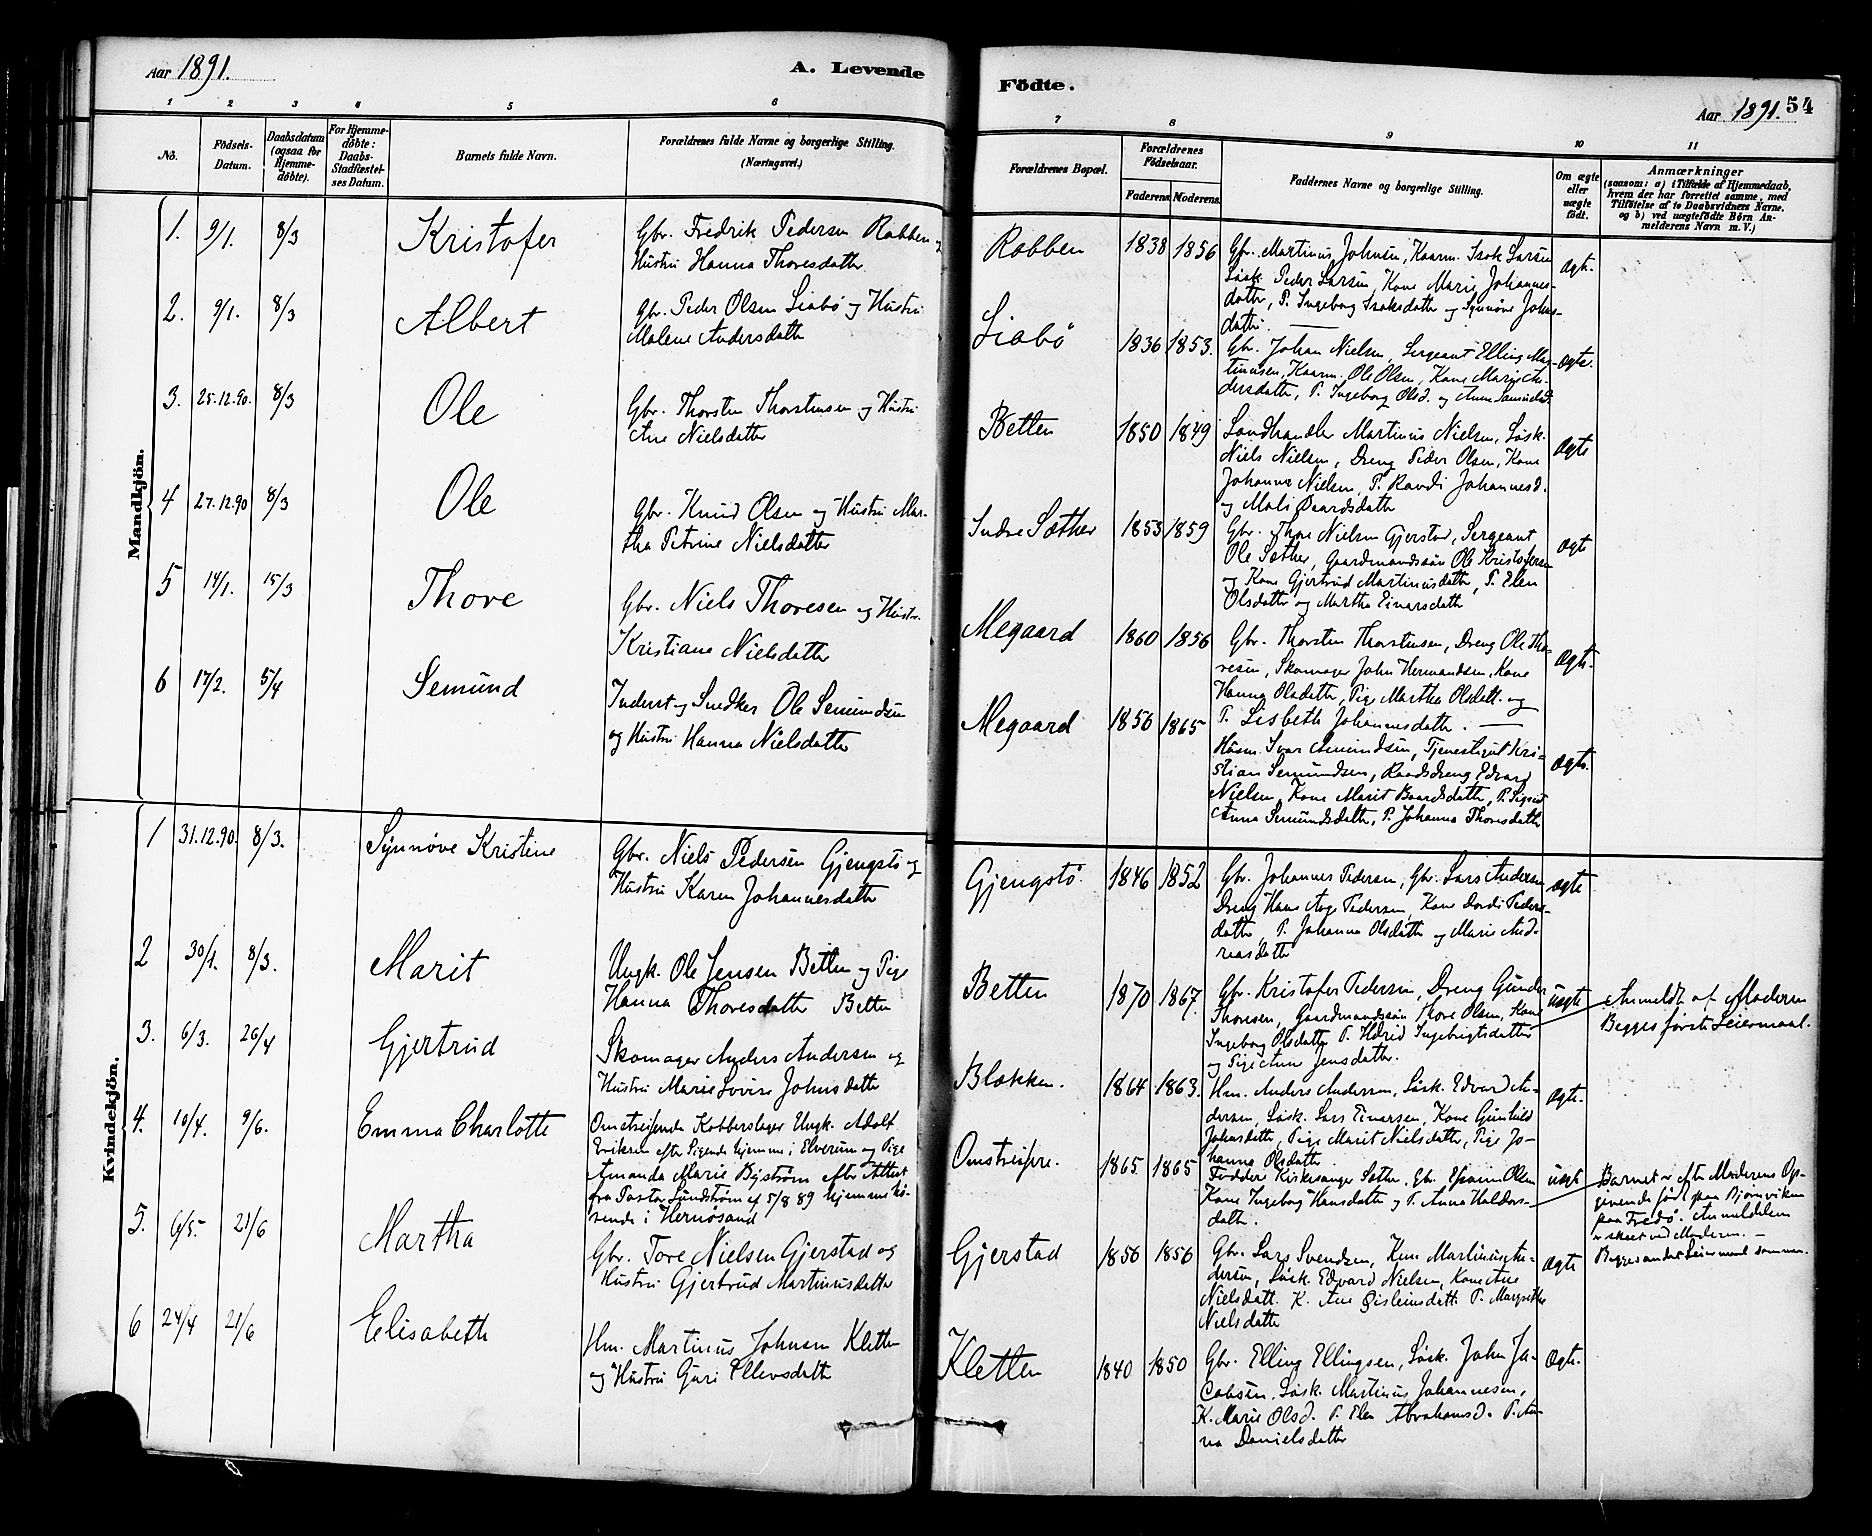 Aar 1891.
A. Levende
1 2 3 4 5 6
No.
Födsels-
Datum.
Daabsdatum
(ogsaa for
Hjemme-
döbte).
For Hjemme-
döbte:
Daabs-
Stadfæstel-
ses Datum.
Barnets fulde Navn.
Forældrenes fulde Navne og borgerlige Stilling.
(Næringsvei.)
Mandkjön.
1. 9/1. 8/3 Kristofer
Gbr. Fredrik Pedersen Robben og
Hustru Hanna Thoresdatter
2. 9/1. 8/3 Albert
Gbr. Peder Olsen Liabø og Hustru
Malene Andersdatter
3. 25.12.90. 8/3 Ole
Gbr. Thorsten Thorstensen og Hustru
Ane Nielsdatter
4 27.12.90 8/3 Ole
Gbr. Knud Olsen og Hustru Mar-
tha Petrine Nielsdatter
5 14/1. 15/3 Thore
Gbr. Niels Thoresen og Hustru
Kristiane Nielsdatter
6 17/2. 5/4 Semund
Inderst og Snedker Ole Semundsen
og Hustru Hanna Nielsdatter
Kvindekjön.
1 31.12.90. 8/3. Synnøve Kristine
Gbr. Niels Pedersen Gjengstø og
Hustru Karen Johannesdatter
2 30/1. 8/3. Marit
Ungk. Ole Jensen Betten og Pige
Hanna Thoresdatter Betten
3. 6/3. 26/4 Gjertrud
Skomager Anders Andersen og
Hustru Marie Lovise Johnsdatter
4. 10/4. 9/6. Emma Charlotte
Omstreifende Kobberslager Ungk. Adolf
Eriksen efter Sigende hjemme i Elverum og Pige
Amanda Marie Byström efter Attest
fra Pastor Lundström af 5/8 89 hjemmehö-
rende i Hernøsand
5. 6/5- 21/6 Martha
Gbr. Tore Nielsen Gjerstad og
Hustru Gjertrud Martinusdatter
6 24/4 21/6 Elisabeth
Hm. Martinus Johnsen Kletten
og Hustru Guri Ellevsdatter
Födte.
Aar 1891. 54
7 8 9 10 11
Forældrenes Bopæl.
Forældrenes
Födselsaar.
Faderens. Moderens.
Faddernes Navne og borgerlige Stilling.
Om ægte
eller
uægte
födt.
Anmærkninger
(saasom: a) i Tilfælde af Hjemmedaab,
hvem der har forrettet samme, med
Tilföielse af to Daabsvidners Navne.
og b) ved uægtefödte Börn An-
melderens Navn m. V.)
Robben 1838 1856
Gbr. Martinus Johnsen, Kaarm. Isak Larsen
Løsk. Peder Larsen, Kone Marie Johannes-
datter, P. Ingeborg Isaksdatter og Synnøve Johns-
datter.
ægte.
Liabø 1836 1853.
Gbr. Johan Nielsen, Sergeant Elling Mar-
tinusen, Kaarm. Ole Olsen, Kone Marie An-
dersdatter, P. Ingeborg Olsd. og Anne Samuelsd.
ægte.
Betten 1850 1849
Landhandler Martinus Nielsen, Løsk.
Niels Nielsen, Dreng Peder Olsen, Kone
Johanne Nielsen, P. Randi Johannesd.
og Mali Baardsdatter
ægte
Indre Sæther 1853 1859
Gbr. Thore Nielsen Gjerstad, Sergeant
Ole Sæther, Gaardmandssøn Ole Kristofersen
og Kone Gjertrud Martinusdatter, P. Elen
Olsdatter og Martha Einarsdatter
ægte
Megaard 1860 1856
Gbr. Thorsten Thorstensen, Dreng Ole Tho-
resen, Skomager John Hermandsen, Kone
Hanna Olsdatter, Pige Martha Olsdatt. og
P. Lisbeth Johannesdatter.
ægte.
Megaard 1856 1865
Husm. Ivar Amundsen, Tjenestegut Kri-
stian Semundsen, Baadsdreng Edvard
Nielsen, Kone Marit Baardsdatter, P. Sigrid
Anna Semundsdatter, P. Johanna Thoresdatter
ægte.
Gjengstø 1846 1852
Gbr. Johannes Pedersen, Gbr. Lars Andersen
Dreng Hans Aage Pedersen, Kone Dordi Peders-
datter, P. Johanna Olsdatter og Marie And-
reasdatter
ægte
Betten 1870 1867.
Gbr. Kristofer Pedersen, Dreng Gunder
Thoresen, Gaardmandssøn Thore Olsen, Kone
Ingeborg Olsdatter P. Ingebrigtsdatter
og Pige Ane Jensdatter.
uægte
Anmeldt af Moderen
Begges første Leiermaal.
Blakken. 1864 1863.
Hm. Anders Andersen, Løsk. Edvard An-
dersen, Løsk. Lars Einarsen, Kone Gunhild
Johnsdatter, Pige Marit Nielsdatter, Pige Jo-
hanna Olsdatter
ægte.
Omstreifere. 1865. 1865
Fadder Kirkesanger Sæther, Gbr. Efraim Olsen
Kone Ingeborg Hansdatter og P. Anna Haldors-
datter.
uægt
Barnet er efter Moderens Op-
givende født paa Bjørnviken
paa Fredø. Anmeldelsen
er skeet ved Moderen. —
Begges andet Leiermaal sammen.
Gjerstad 1856 1856
Gbr. Lars Svendsen, Martinus An-
dersen, Løsk. Edvard Nielsen, Kone Ane
Nielsdatt. K. Ane Gisleinsdatt. P. Margrethe
Nielsdatter
ægte
Kletten 1840 1850
Gbr. Elling Ellingsen, Løsk. John Ja-
cobsen, Løsk. Martinus Johannesen,
K. Marie Olsd. P. Elen Abrahamsd. P. An-
na Danielsdatter
ægte.